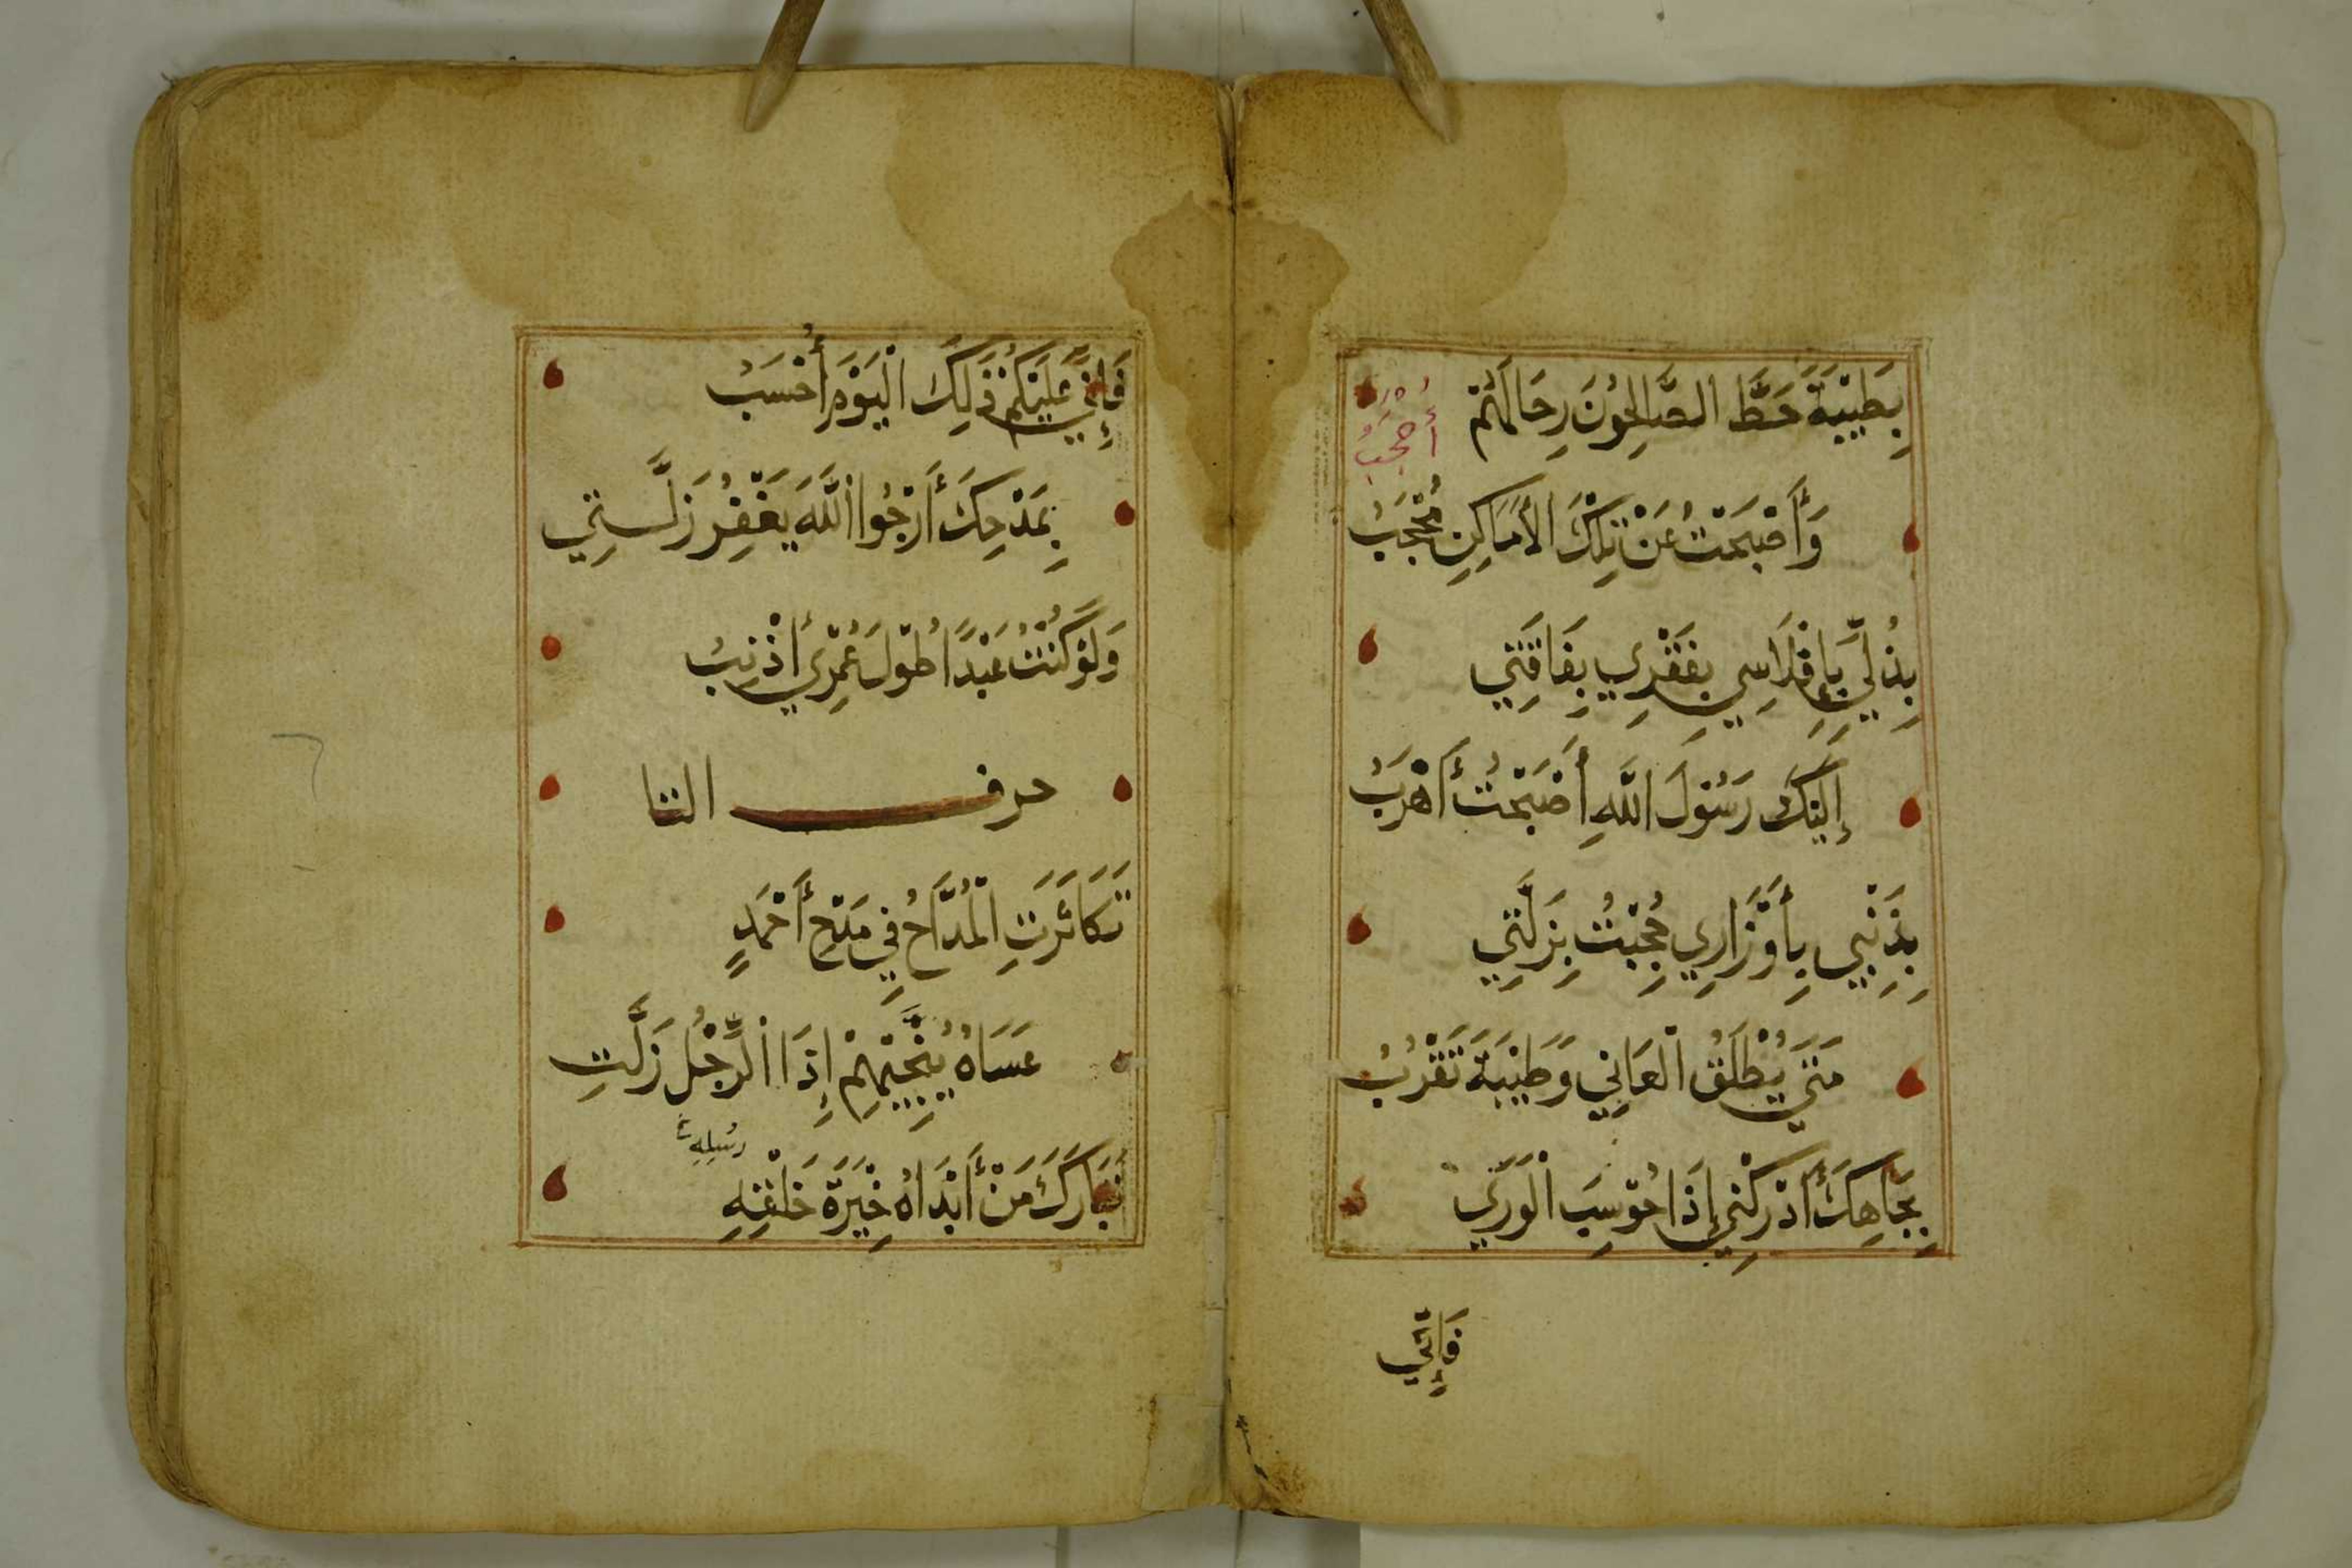 بِطَيْبَةَ حَطَّ الصَّالِحُونَ رِحَالَهُمْ
أُحْجَبُ
وَأَصْبَحْتُ عَنْ تِلْكَ الأَمَاكِنِ مُحْجَبُ
بِذُلِّي بِإِفْلَاسِي بِفَقْرِي بِفَاقَتِي
إِلَيْكَ رَسُولَ اللَّهِ أَصْبَحْتُ أَهْرَبُ
بِذَنْبِي بِأَوْزَارِي حُجِبْتُ بِزَلَّتِي
مَتَى يُطْلَقُ الْعَانِي وَطَيْبَةَ تَقْرُبُ
بِجَاهِكَ أَدْرِكْنِي إِذَا حُوسِبَ الْوَرَى
فَإِنِّي
فَإِنِّي عَلَيْكُمْ ذَلِكَ الْيَوْمَ أُحْسَبُ
بِمَدْحِكَ أَرْجُوا اللَّهَ يَغْفِرُ زَلَّتِي
وَلَوْ كُنْتُ عَبْدًا طُولَ عُمْرِي أُذْنِبُ
حرف التا
تَكَاثَرَتِ الْمُدَّاحُ فِي مَدْحِ أَحْمَدٍ
عَسَاهُ يُنَجِّيهِمْ إِذَا الرِّجْلُ زَلَّتِ
رُسْلِهِ
تَبَارَكَ مَنْ أَبْدَاهُ خِيَرَةَ خَلْقِهِ